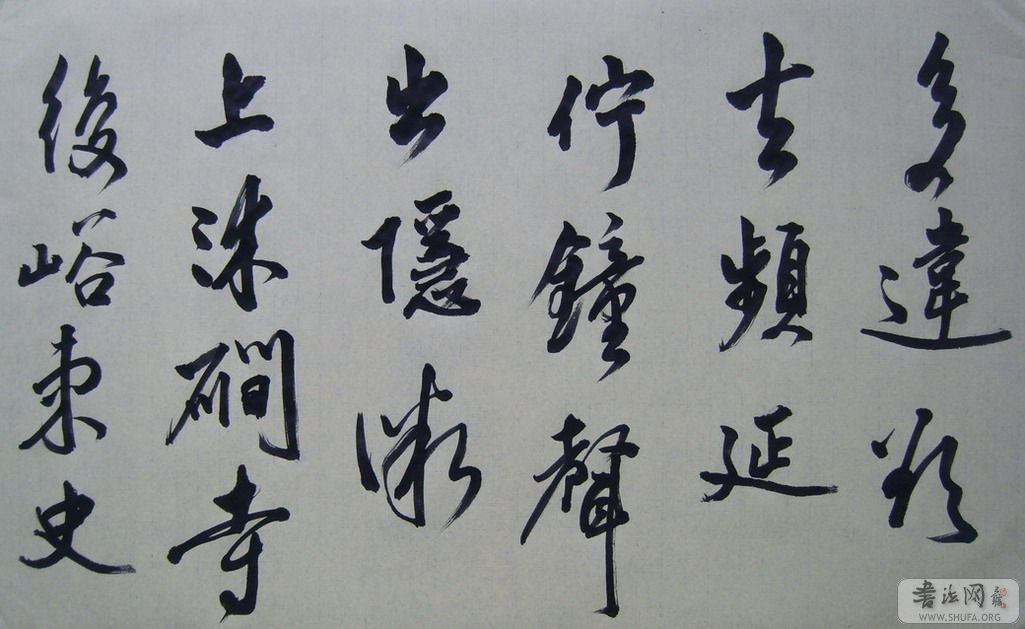 多違欲
去頻延
佇鐘聲
出隱微
上洙磵寺
後峪東史
书法网
WWW.SHUFA.ORG